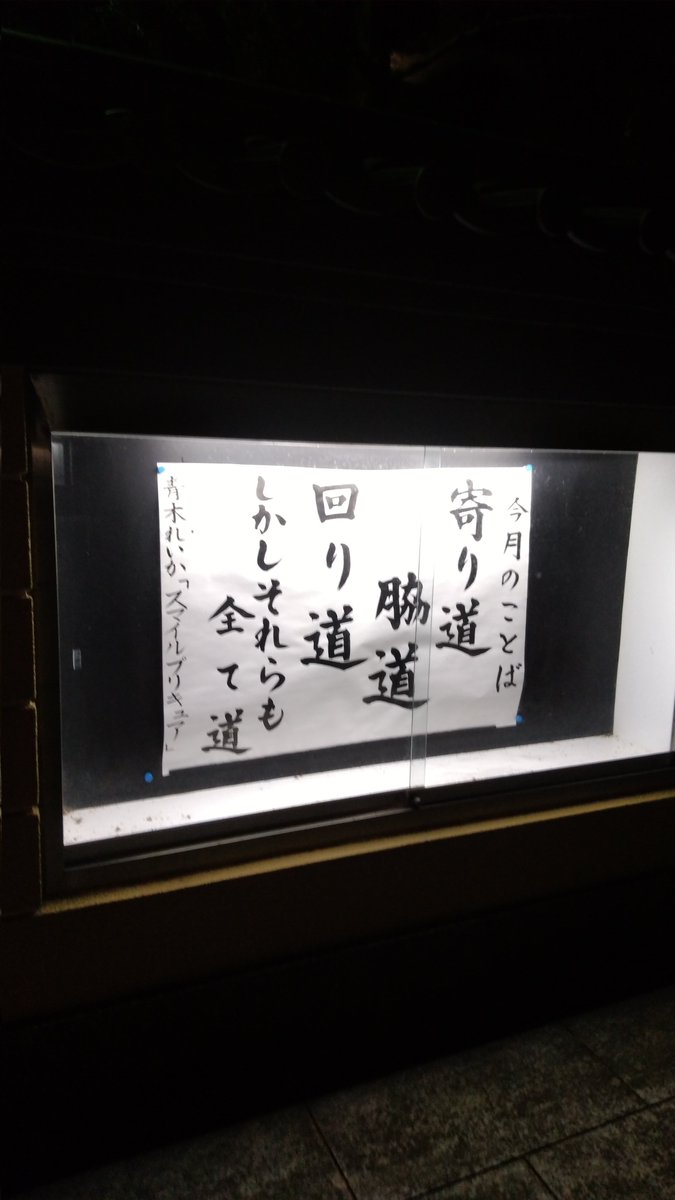 今月のことば
寄り道
脇道
回り道
しかしそれらも
全て道
青木れいか「スマイルプリキュア」